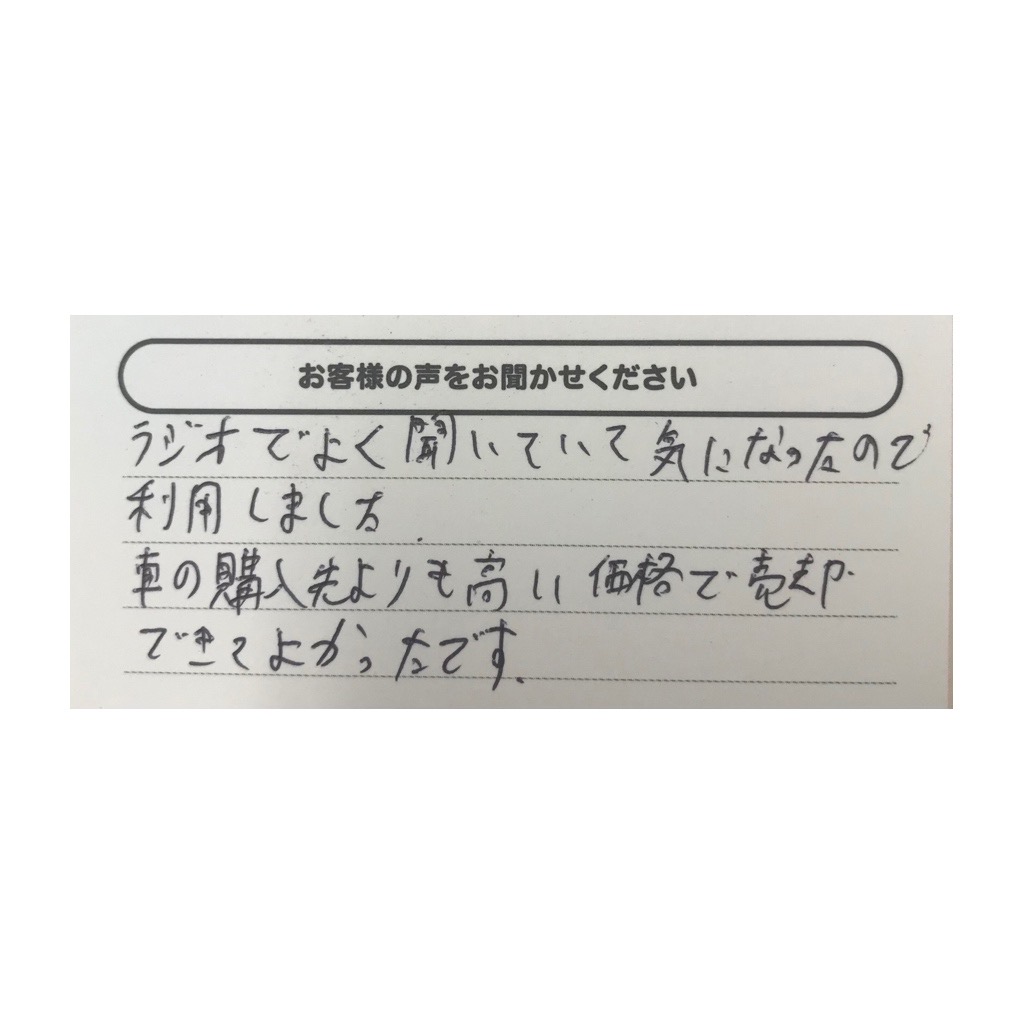 お客様の声をお聞かせください
ラジオでよく聞いていて気になったので
利用しました.
車の購入先よりも高い価格で売却
できてよかったです.